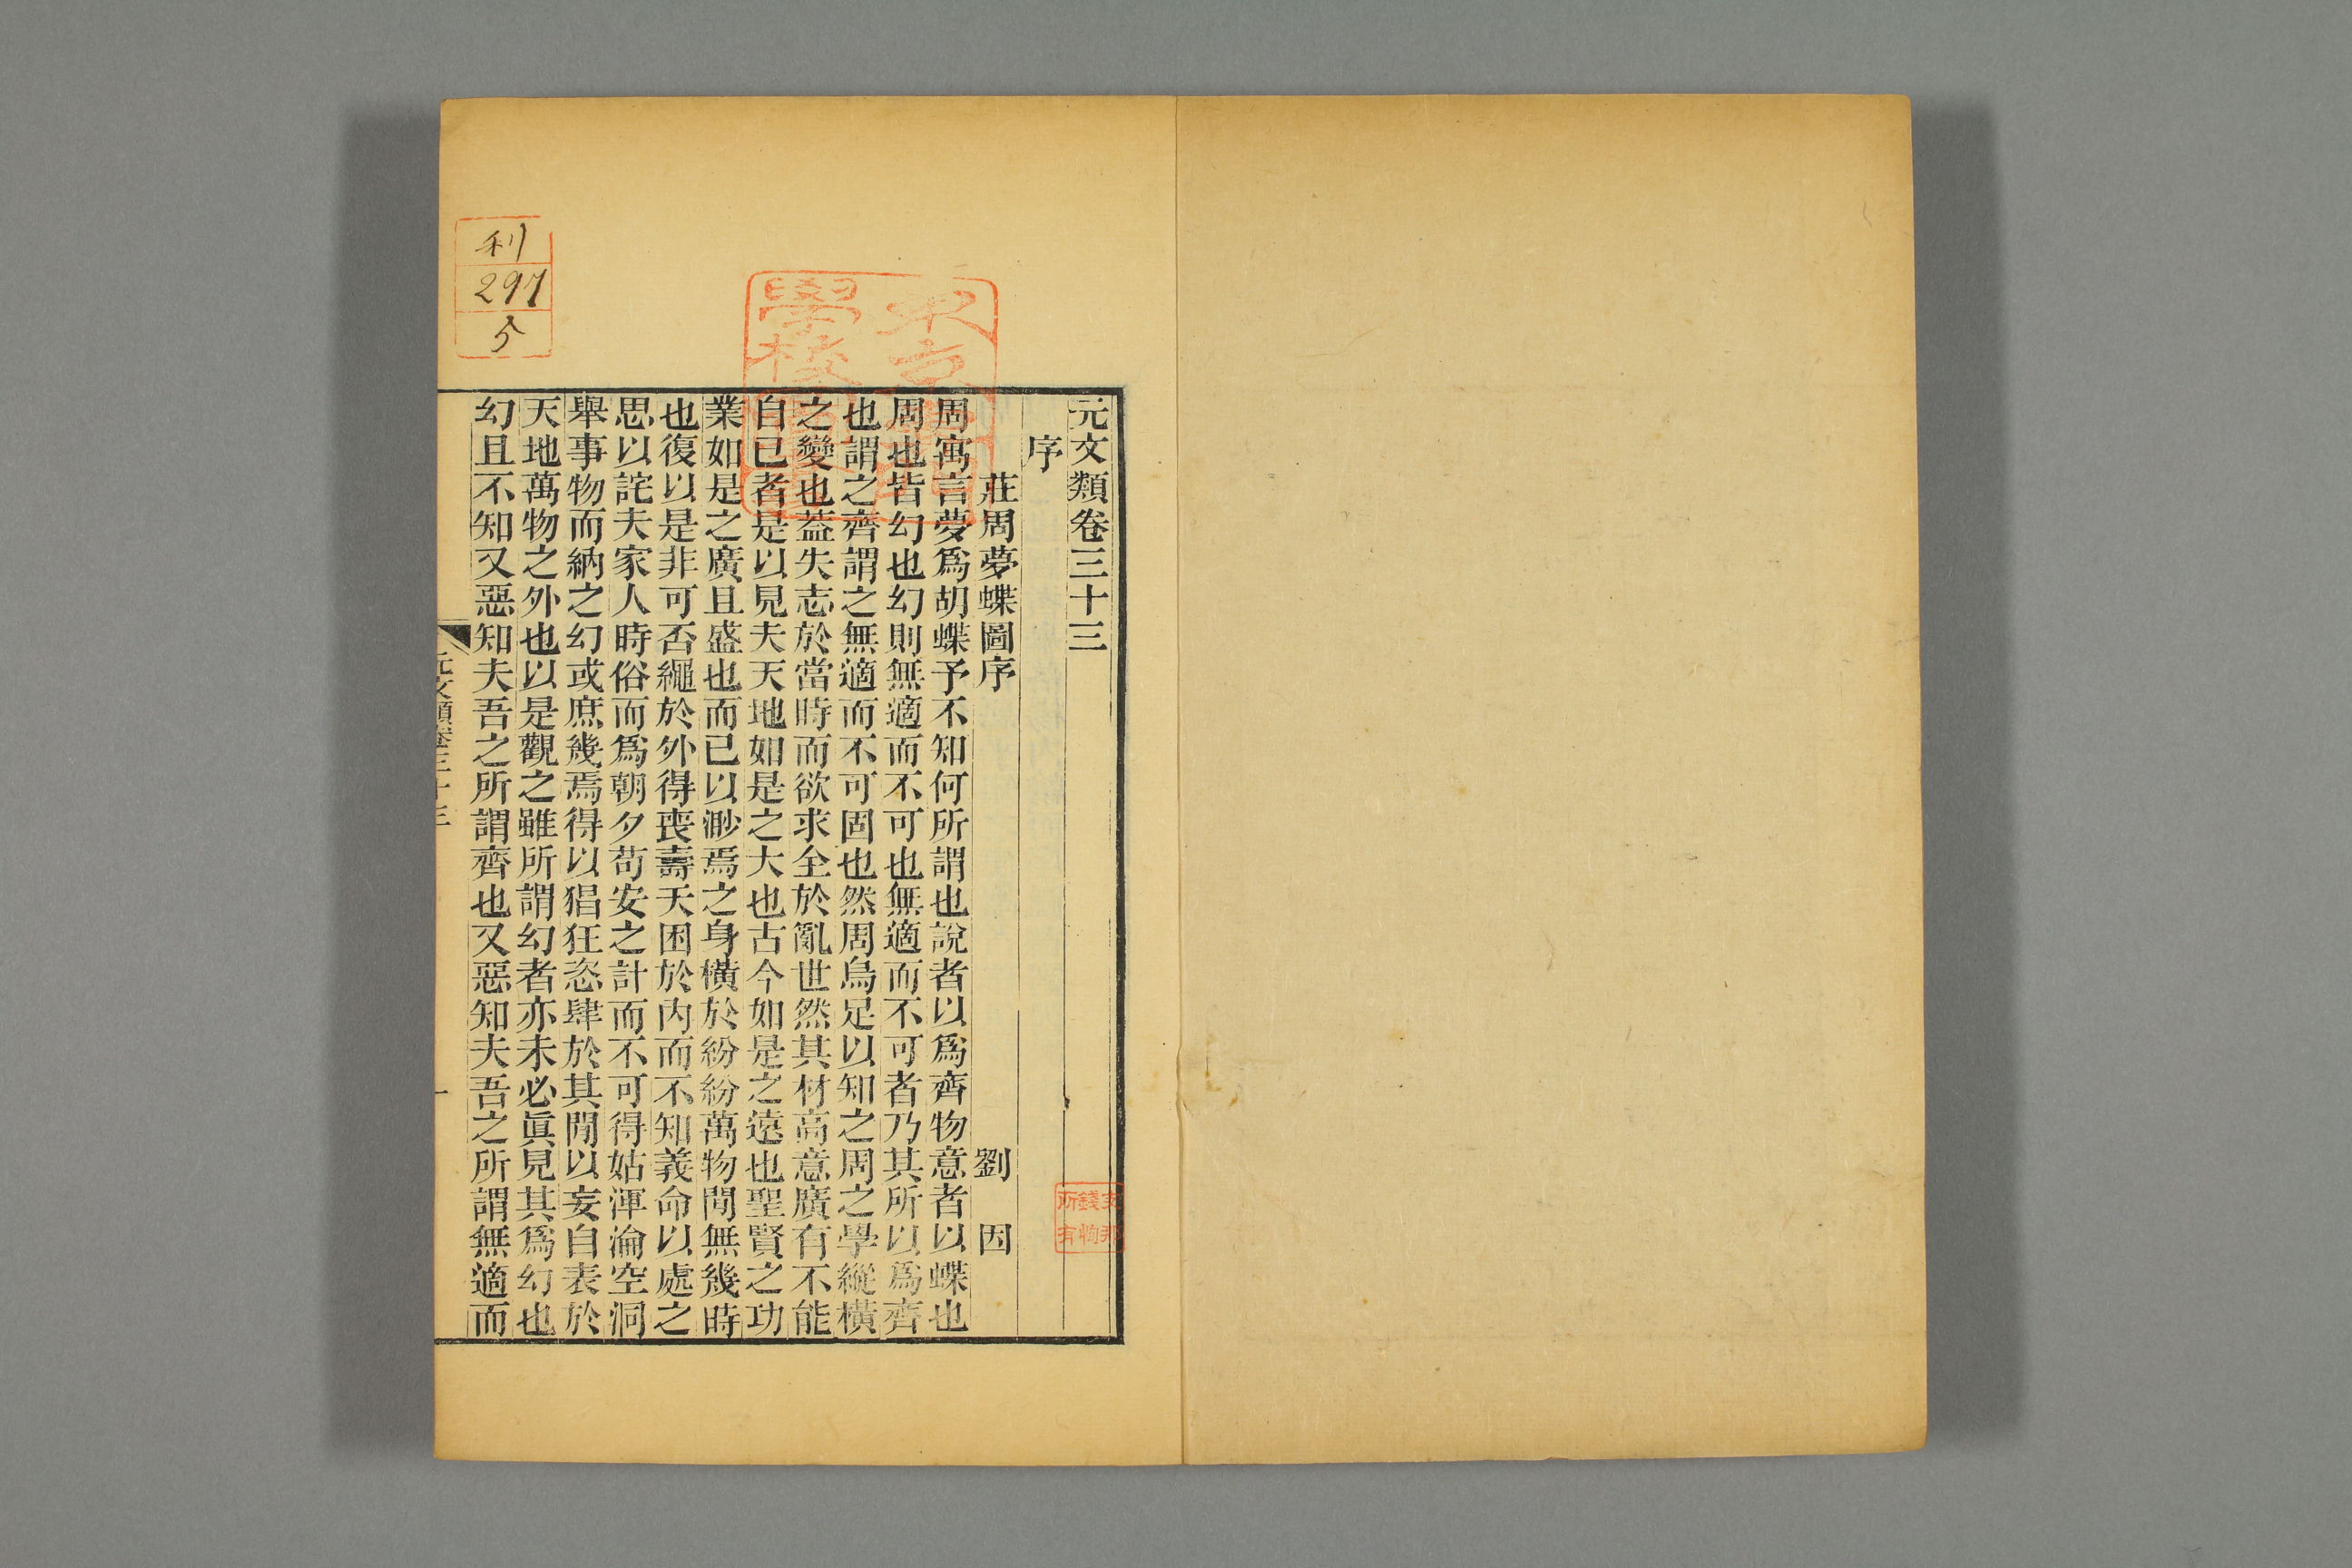 元文類卷三十三
序
莊周夢蝶圖序 劉因
周寓言夢爲胡蝶予不知何所謂也說者以爲齊物意者以蝶也
周也皆幻也幻則無適而不可也無適而不可者乃其所以爲齊
也謂之齊謂之無適而不可固也然周烏足以知之周之學縱橫
之變也葢失志於當時而欲求全於亂世然其材高意廣有不能
自已者是以見夫天地如是之大也古今如是之遠也聖賢之功
業如是之廣且盛也而已以渺焉之身橫於紛紛萬物閒無幾時
也復以是非可否繩於外得喪壽夭困於內而不知義命以處之
思以詫夫家人時俗而爲朝夕苟安之計而不可得姑渾淪空洞
舉事物而納之幻或庶幾焉得以猖狂恣肆於其閒以妄自表於
天地萬物之外也以是觀之雖所謂幻者亦未必眞見其爲幻也
幻且不知又惡知夫吾之所謂齊也又惡知夫吾之所謂無適而
元文類卷三十三
一
利
297
5